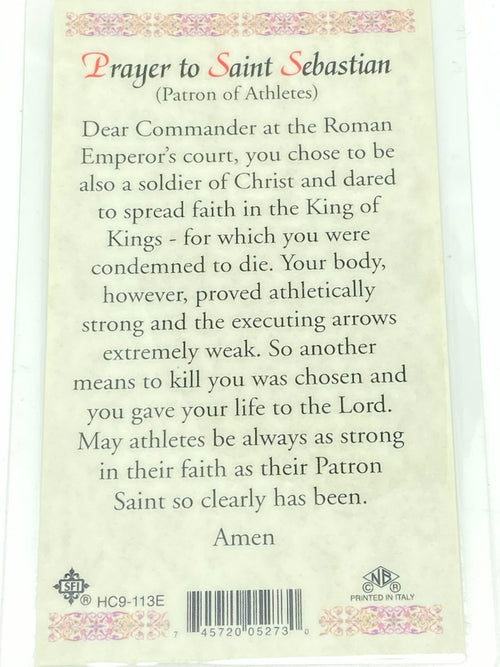 Prayer to Saint Sebastian
(Patron of Athletes)
Dear Commander at the Roman
Emperor's court, you chose to be
also a soldier of Christ and dared
to spread faith in the King of
Kings - for which you were
condemned to die. Your body,
however, proved athletically
strong and the executing arrows
extremely weak. So another
means to kill you was chosen and
you gave your life to the Lord.
May athletes be always as strong
in their faith as their Patron
Saint so clearly has been.
Amen
SFI ® HC9-113E
7 45720 05273 0
NB
© ®
PRINTED IN ITALY